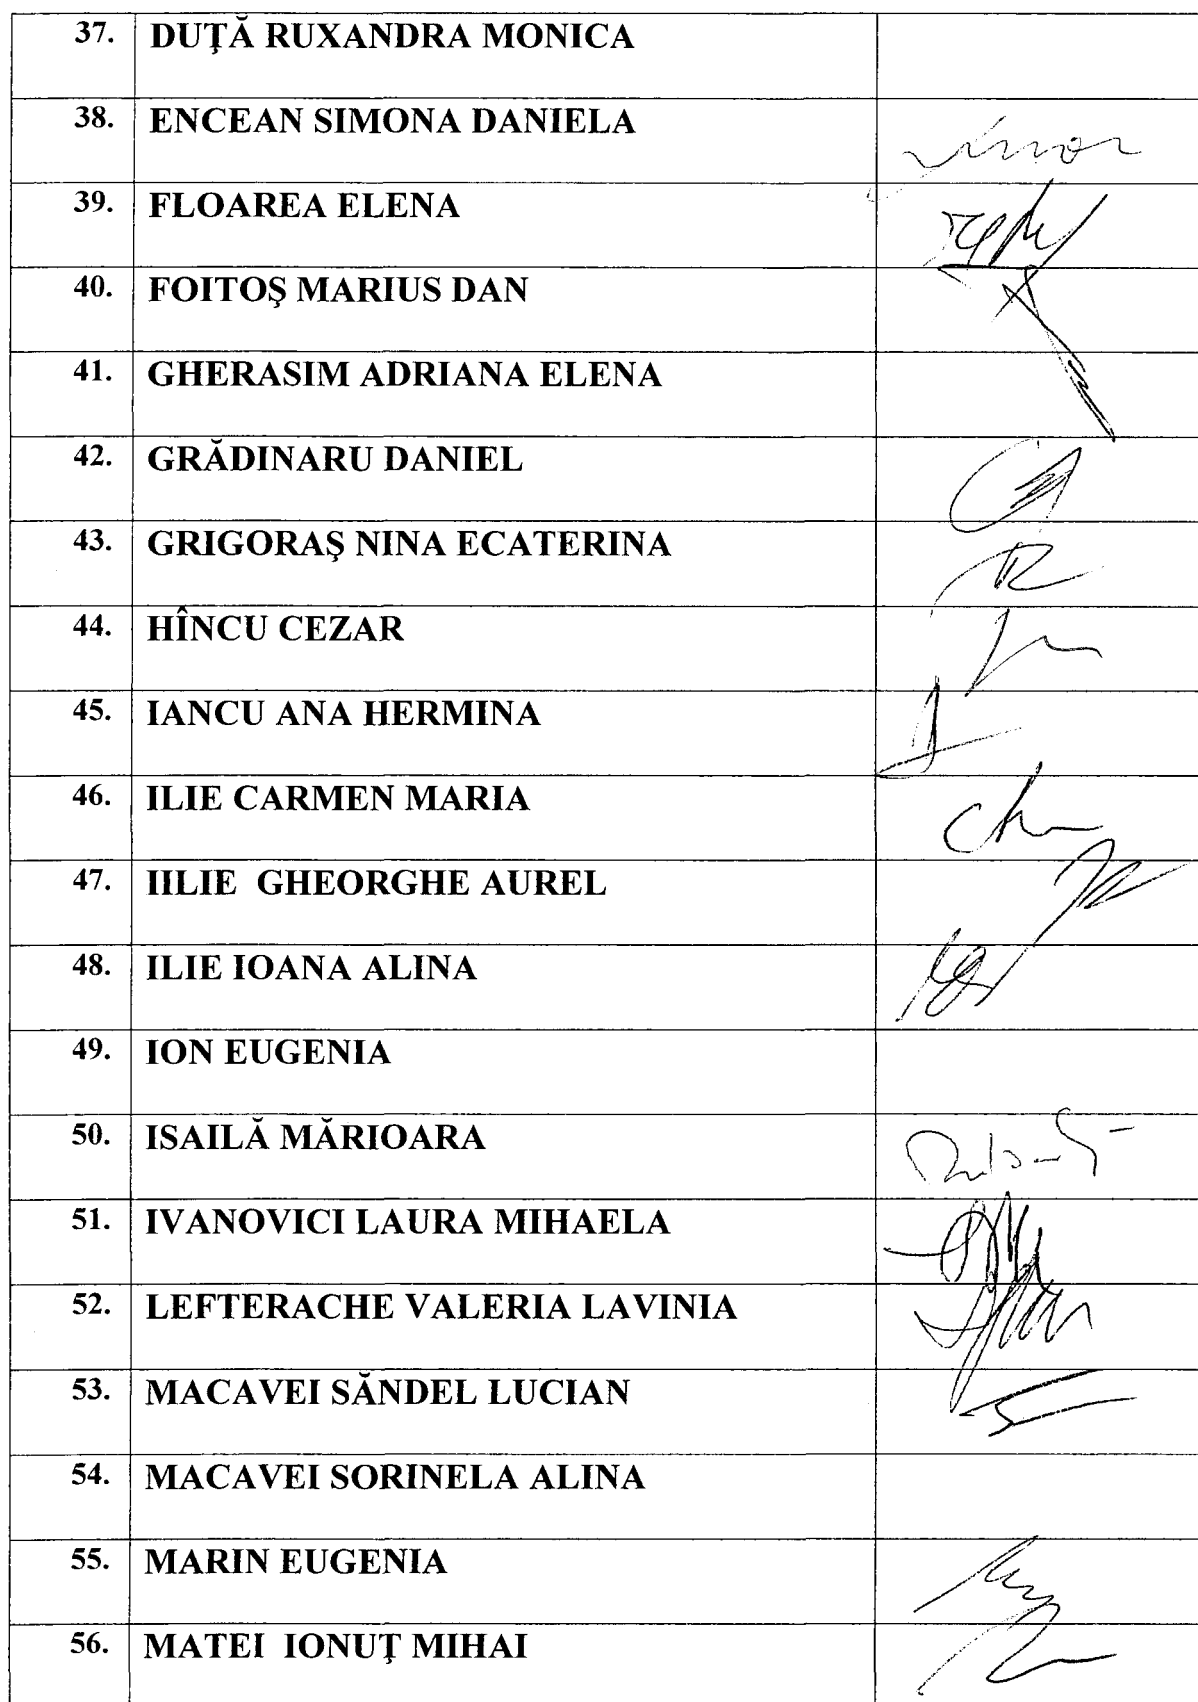 37. DUŢĂ RUXANDRA MONICA
38. ENCEAN SIMONA DANIELA
39. FLOAREA ELENA
40. FOITOŞ MARIUS DAN
41. GHERASIM ADRIANA ELENA
42. GRĂDINARU DANIEL
43. GRIGORAŞ NINA ECATERINA
44. HÎNCU CEZAR
45. IANCU ANA HERMINA
46. ILIE CARMEN MARIA
47. IILIE GHEORGHE AUREL
48. ILIE IOANA ALINA
49. ION EUGENIA
50. ISAILĂ MĂRIOARA
51. IVANOVICI LAURA MIHAELA
52. LEFTERACHE VALERIA LAVINIA
53. MACAVEI SĂNDEL LUCIAN
54. MACAVEI SORINELA ALINA
55. MARIN EUGENIA
56. MATEI IONUŢ MIHAI